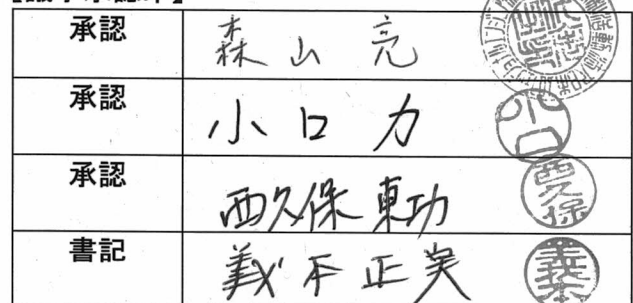 承認 森山 亮
承認 小口 力
小口
承認 西久保 東功
西久保
書記 義本 正実
義本